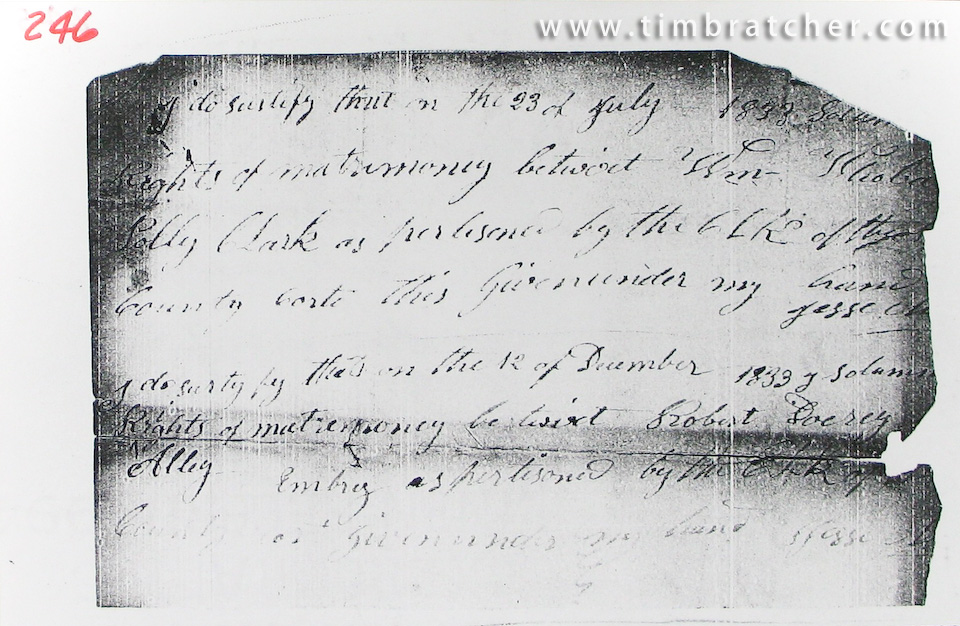 246
www.timbratcher.com
I do sertify that on the 23 of July 1833
Rights of matrimoney betwixt Wm
Polly Clark as pertisoned by the CLK of
County Corte this Given under my hand
Jesse
I do surty fy that on the 12 of December 1833 y
Rights of matremoney betwixt Robert
Alley Embry as pertisoned by the Clk
County Given under my hand Jesse